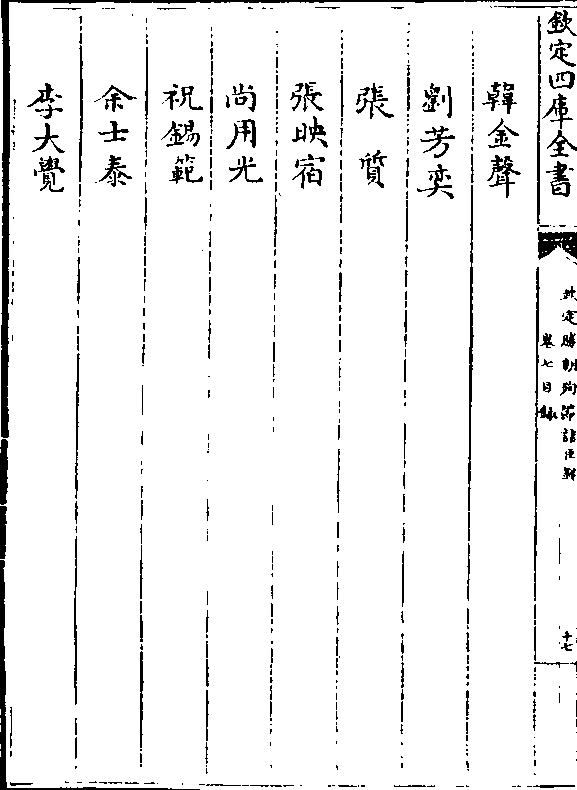 欽定四庫全書
欽定勝朝殉節諸臣錄
卷七目錄
十七
韓金聲
劉芳奕
張質
張映宿
尚用光
祝錫範
余士泰
李大覺